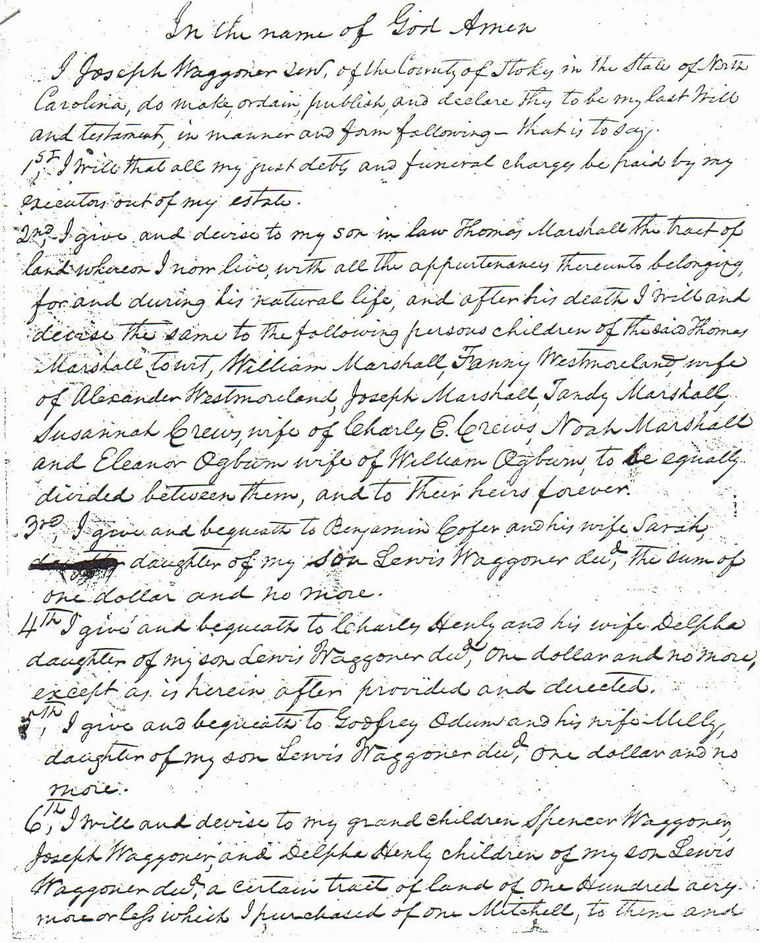 In the name of God Amen
I Joseph Waggoner sen. of the County of Stokes in the State of North
Carolina, do make, ordain, publish, and declare this to be my last Will
and testament, in manner and form following – that is to say.
1st, I will that all my just debts and funeral charges be paid by my
executors out of my estate.
2nd, I give and devise to my son in law Thomas Marshall the tract of
land whereon I now live, with all the appurtenances thereunto belonging,
for and during his natural life, and after his death I will and
devise the same to the following persons children of the said Thomas
Marshall to wit, William Marshall, Fanny Westmoreland, wife
of Alexander Westmoreland, Joseph Marshall, Tandy Marshall,
Susannah Crews, wife of Charly E. Crews, Noah Marshall
and Eleanor Ogburn wife of William Ogburn, to be equally
divided between them, and to their heirs forever.
3rd, I give and bequeath to Benjamin Cofer and his wife Sarah,
daughter of my son Lewis Waggoner decd, the sum of
one dollar and no more.
4th I give and bequeath to Charles Henly and his wife Delpha
daughter of my son Lewis Waggoner decd, one dollar and no more,
except as is herein after provided and directed.
5th, I give and bequeath to Godfrey Odum and his wife Milly,
daughter of my son Lewis Waggoner decd, one dollar and no
more.
6th, I will and devise to my grand children Spencer Waggoner,
Joseph Waggoner, and Delpha Henly children of my son Lewis
Waggoner decd, a certain tract of land of one Hundred acres
more or less which I purchased of one Mitchell, to them and